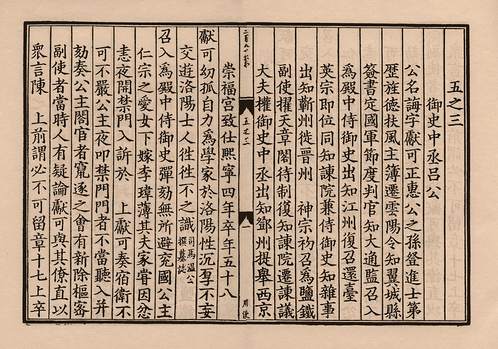 五之三
御史中丞呂公
公名誨字獻可正惠公之孫登進士第
歷旌德扶風主簿遷雲陽令知翼城縣
簽書定國軍節度判官知大通監召入
爲殿中侍御史出知江州復召還臺
英宗即位同知諫院兼侍御史知雜事
出知蘄州徙晉州 神宗初召爲鹽鐵
副使擢天章閣待制復知諫院遷諫議
大夫權御史中丞出知鄧州提舉西京
五之三
一
崇福宮致仕熙寧四年卒年五十八
獻可幼孤自力爲學家於洛陽性沉厚不妄
交遊洛陽士人往往不之識 司馬溫公撰墓誌
召入爲殿中侍御史彈劾無所避兖國公主
仁宗之愛女下嫁李瑋薄其夫家嘗因忿
恚夜開禁門入訴於 上獻可奏宿衛不
可不嚴公主夜叩禁門門者不當聽入并
劾奏公主閤宦者竄逐之會有新除樞密
副使者當時人有疑論獻可與其僚直以
衆言陳 上前謂必不可留章十七上卒